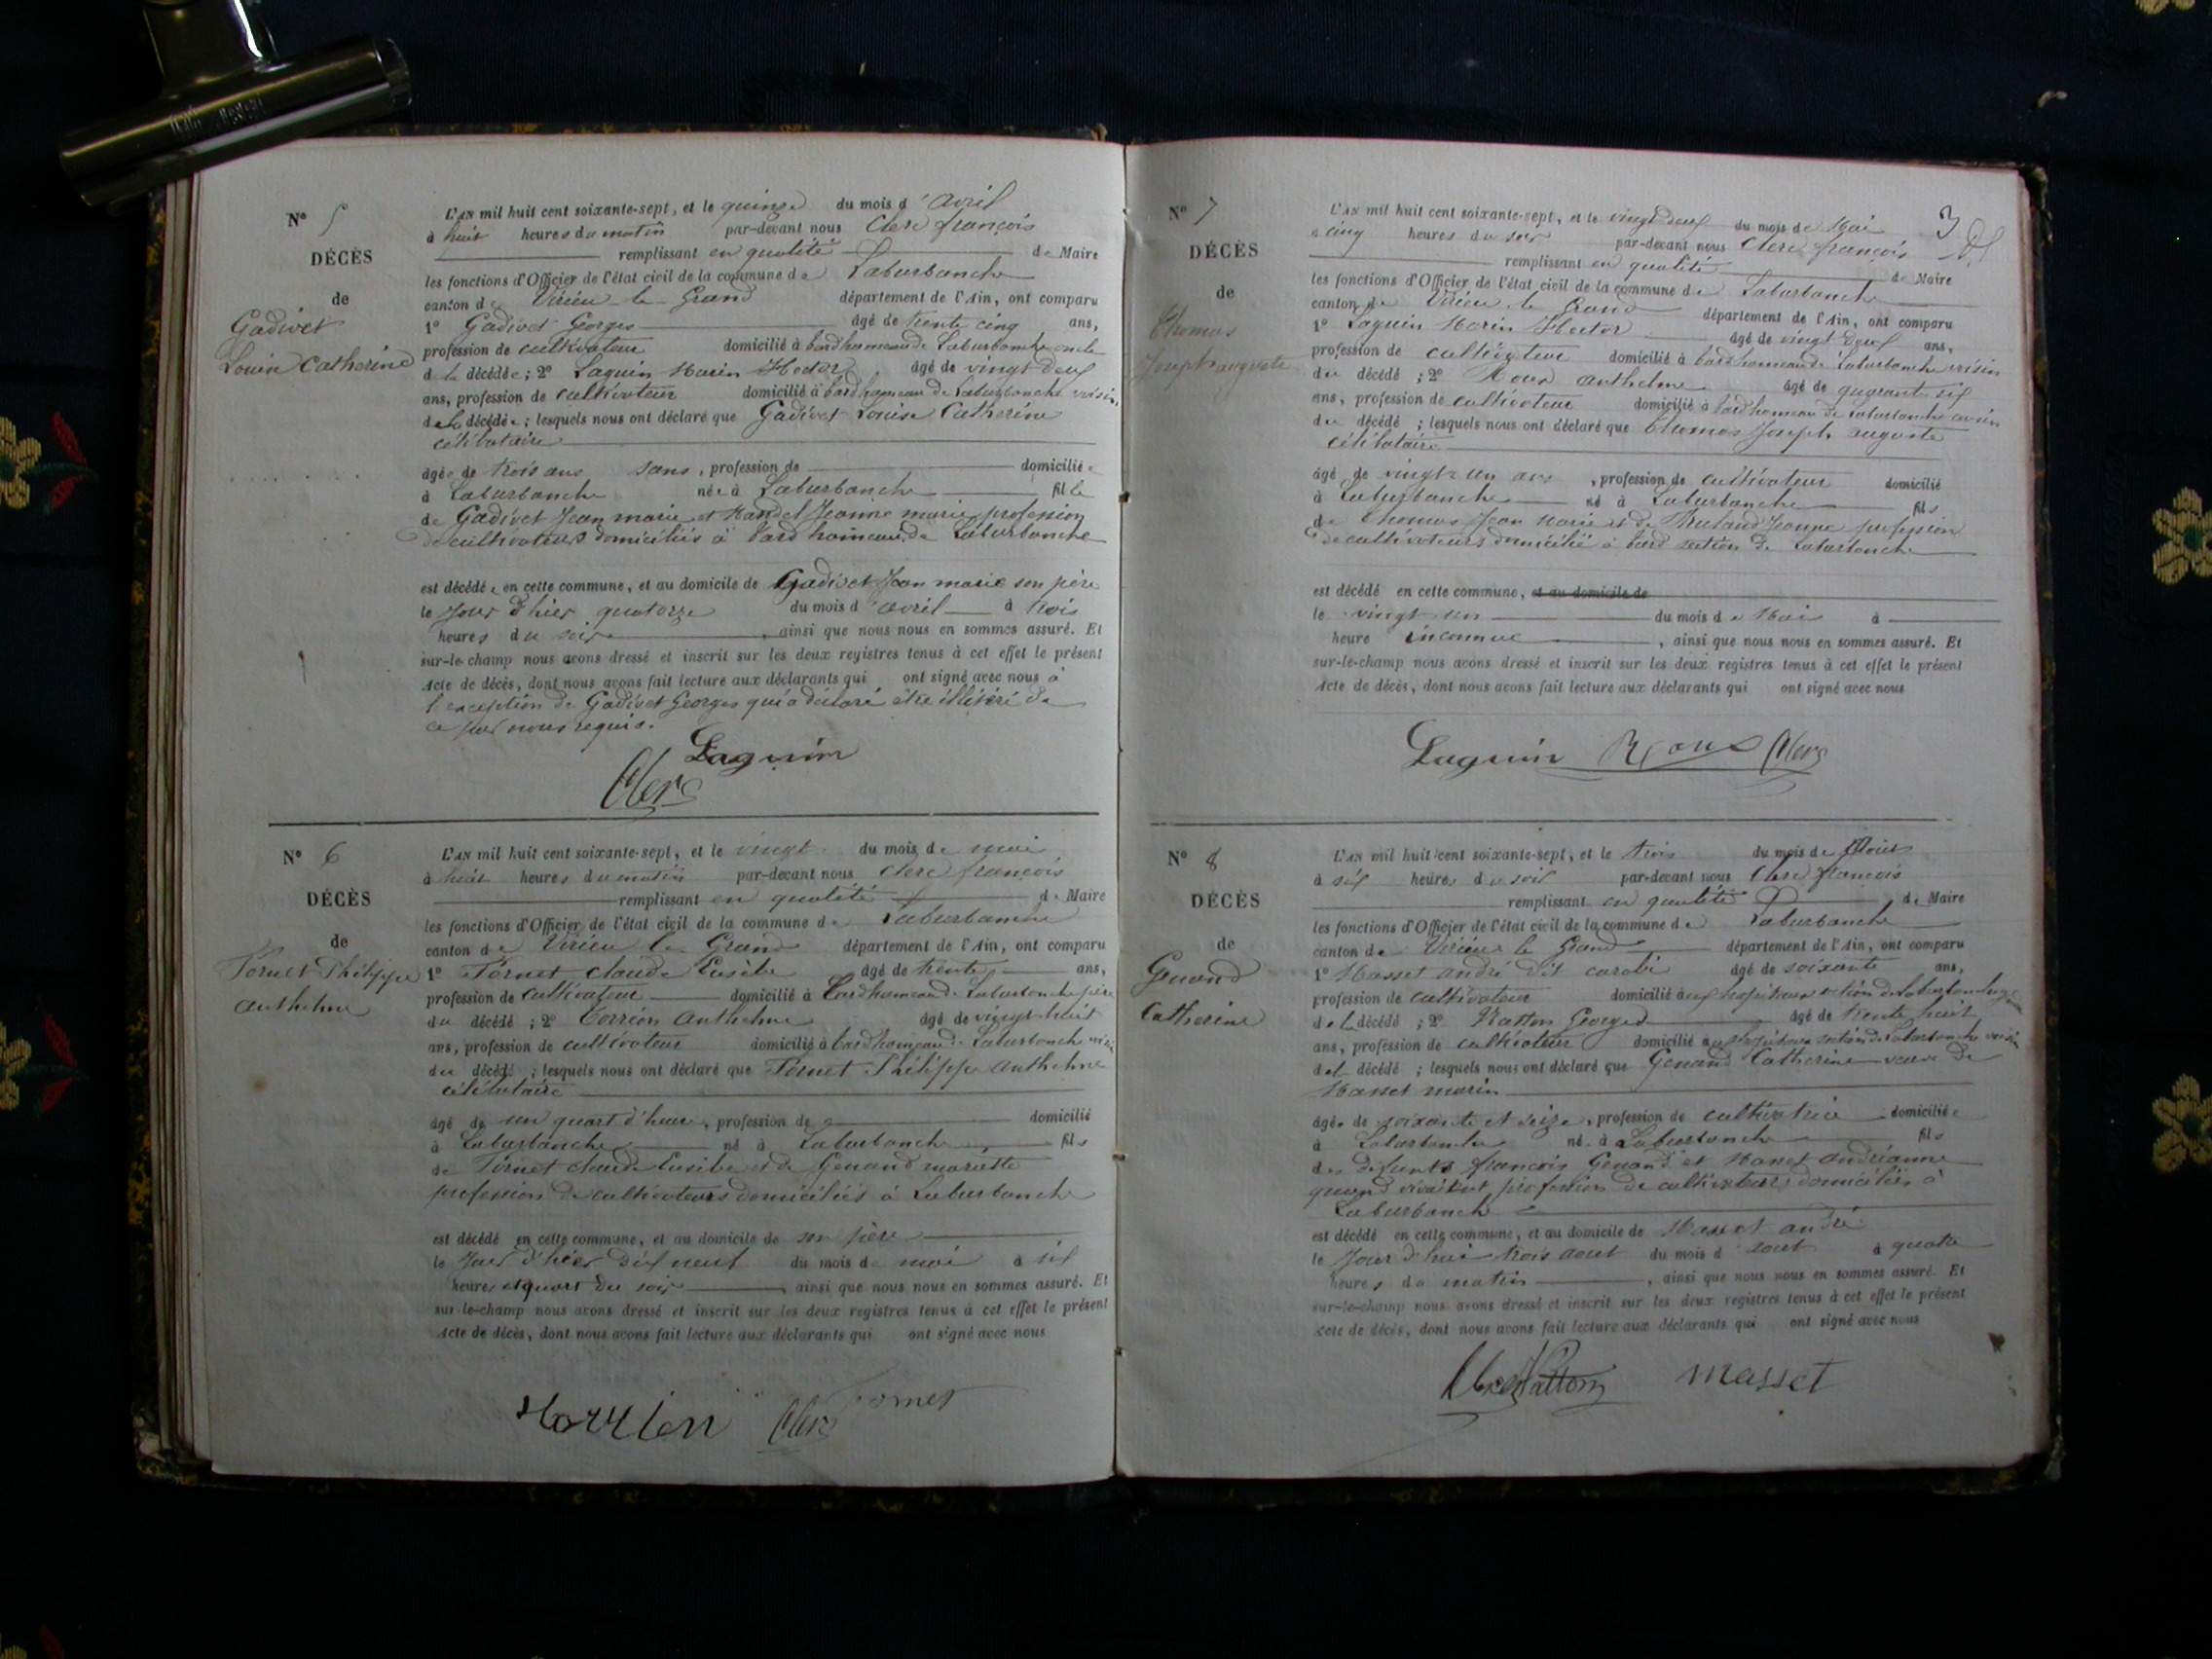 N° 5
DÉCÈS
de
Gadivet
Louise Catherine
L'AN mil huit cent soixante-sept, et le quinze du mois d'avril
à huit heures du matin par-devant nous Clerc françois
remplissant en qualité de Maire
les fonctions d'Officier de l'état civil de la commune de Laburbanche
canton de Virieu le Grand département de l'Ain, ont comparu
1° Gadivet Georges âgé de trente cinq ans,
profession de cultivateur domicilié à bard hameau de Laburbanche oncle
de la décédée; 2° Laguin Marin Hector âgé de vingt deux
ans, profession de cultivateur domicilié à bard hameau de Laburbanche voisin
de la décédée; lesquels nous ont déclaré que Gadivet Louise Catherine
célibataire
âgée de trois ans sans, profession de domiciliée
à Laburbanche née à Laburbanche fille
de Gadivet Jean marie et Jeanne marie profession
de cultivateurs domiciliés à bard hameau de Laburbanche
est décédée en cette commune, et au domicile de Gadivet Jean marie son père
le jour d'hier quatorze du mois d'avril à trois
heures du soir, ainsi que nous nous en sommes assuré. Et
sur-le-champ nous avons dressé et inscrit sur les deux registres tenus à cet effet le présent
Acte de décès, dont nous avons fait lecture aux déclarants qui ont signé avec nous à
l'exception de Gadivet Georges qui a déclaré être illitéré de
ce par nous requis.
Laguin
Clerc
N° 6
DÉCÈS
de
Fornet Philippe
Anthelme
L'AN mil huit cent soixante-sept, et le vingt du mois de mai
à huit heures du matin par-devant nous Clerc françois
remplissant en qualité de Maire
les fonctions d'Officier de l'état civil de la commune de Laburbanche
canton de Virieu le Grand département de l'Ain, ont comparu
1° Fornet Claude Eusèbe âgé de trente ans,
profession de cultivateur domicilié à bard hameau de Laburbanche père
du décédé; 2° Anthelme âgé de vingt huit
ans, profession de cultivateur domicilié à bard hameau de Laburbanche voisin
du décédé; lesquels nous ont déclaré que Fornet Philippe Anthelme
célibataire
âgé de un quart d'heure, profession de domicilié
à Laburbanche né à Laburbanche fils
de Fornet Claude Eusèbe et de Genand mariette
profession de cultivateurs domiciliés à Laburbanche
est décédé en cette commune, et au domicile de son père
le jour d'hier dix neuf du mois de mai à six
heures et quart du soir, ainsi que nous nous en sommes assuré. Et
sur-le-champ nous avons dressé et inscrit sur les deux registres tenus à cet effet le présent
Acte de décès, dont nous avons fait lecture aux déclarants qui ont signé avec nous
Clerc Fornet
3
N° 7
DÉCÈS
de
Thomas
Joseph auguste
L'AN mil huit cent soixante-sept, et le vingt deux du mois de Mai
à cinq heures du soir par-devant nous Clerc françois
remplissant en qualité de Maire
les fonctions d'Officier de l'état civil de la commune de Laburbanche
canton de Virieu le Grand département de l'Ain, ont comparu
1° Laguin Marin Hector âgé de vingt deux ans,
profession de cultivateur domicilié à bard hameau de Laburbanche voisin
du décédé; 2° Roux anthelme âgé de quarant six
ans, profession de cultivateur domicilié à bard hameau de Laburbanche voisin
du décédé; lesquels nous ont déclaré que Thomas Joseph auguste
célibataire
âgé de vingt un ans, profession de cultivateur domicilié
à Laburbanche né à Laburbanche fils
de Thomas Jean Marie et de profession
de cultivateurs domicilié à bard section de Laburbanche
est décédé en cette commune, et au domicile de
le vingt un du mois de Mai à
heure inconnue, ainsi que nous nous en sommes assuré. Et
sur-le-champ nous avons dressé et inscrit sur les deux registres tenus à cet effet le présent
Acte de décès, dont nous avons fait lecture aux déclarants qui ont signé avec nous
Laguin Roux Clerc
N° 8
DÉCÈS
de
Genand
Catherine
L'AN mil huit cent soixante-sept, et le trois du mois de Aout
à six heures du soir par-devant nous Clerc françois
remplissant en qualité de Maire
les fonctions d'Officier de l'état civil de la commune de Laburbanche
canton de Virieu le Grand département de l'Ain, ont comparu
1° Masset andré dit âgé de soixante ans,
profession de cultivateur domicilié section de Laburbanche
de la décédé; 2° Ratton Georges âgé de trente huit
ans, profession de cultivateur domicilié section de Laburbanche voisin
de la décédé; lesquels nous ont déclaré que Genand Catherine veuve de
Masset marin
âgée de soixante et seize, profession de cultivatrice domiciliée
à Laburbanche né à Laburbanche fils
des défunts françois Genand et Masset andréanne
quand vivaient profession de cultivateurs domiciliés à
Laburbanche
est décédé en cette commune, et au domicile de Masset andré
le Jour d'hui trois aout du mois d'aout à quatre
heures du matin, ainsi que nous nous en sommes assuré. Et
sur-le-champ nous avons dressé et inscrit sur les deux registres tenus à cet effet le présent
Acte de décès, dont nous avons fait lecture aux déclarants qui ont signé avec nous
Clerc Ratton masset